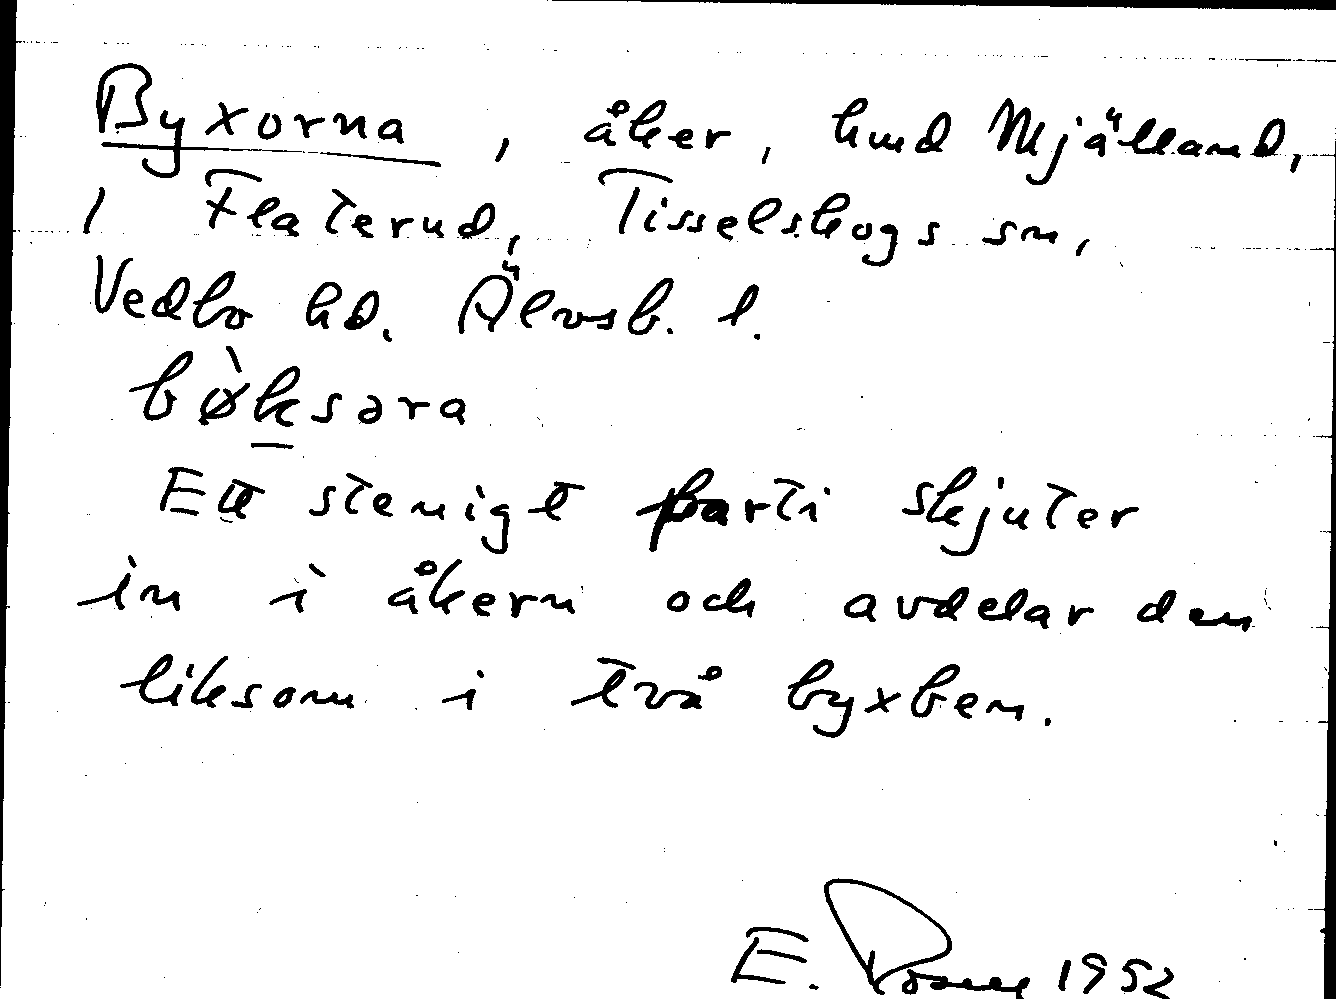 Byxorna, åker, hmd Mjälland,
1 Flaterud, Tisselskogs sn,
Vedbo hd. Älvsb. l.
bø̀ksəra
Ett stenigt parti skjuter
in i åkern och avdelar den
liksom i två byxben.
E. 1952